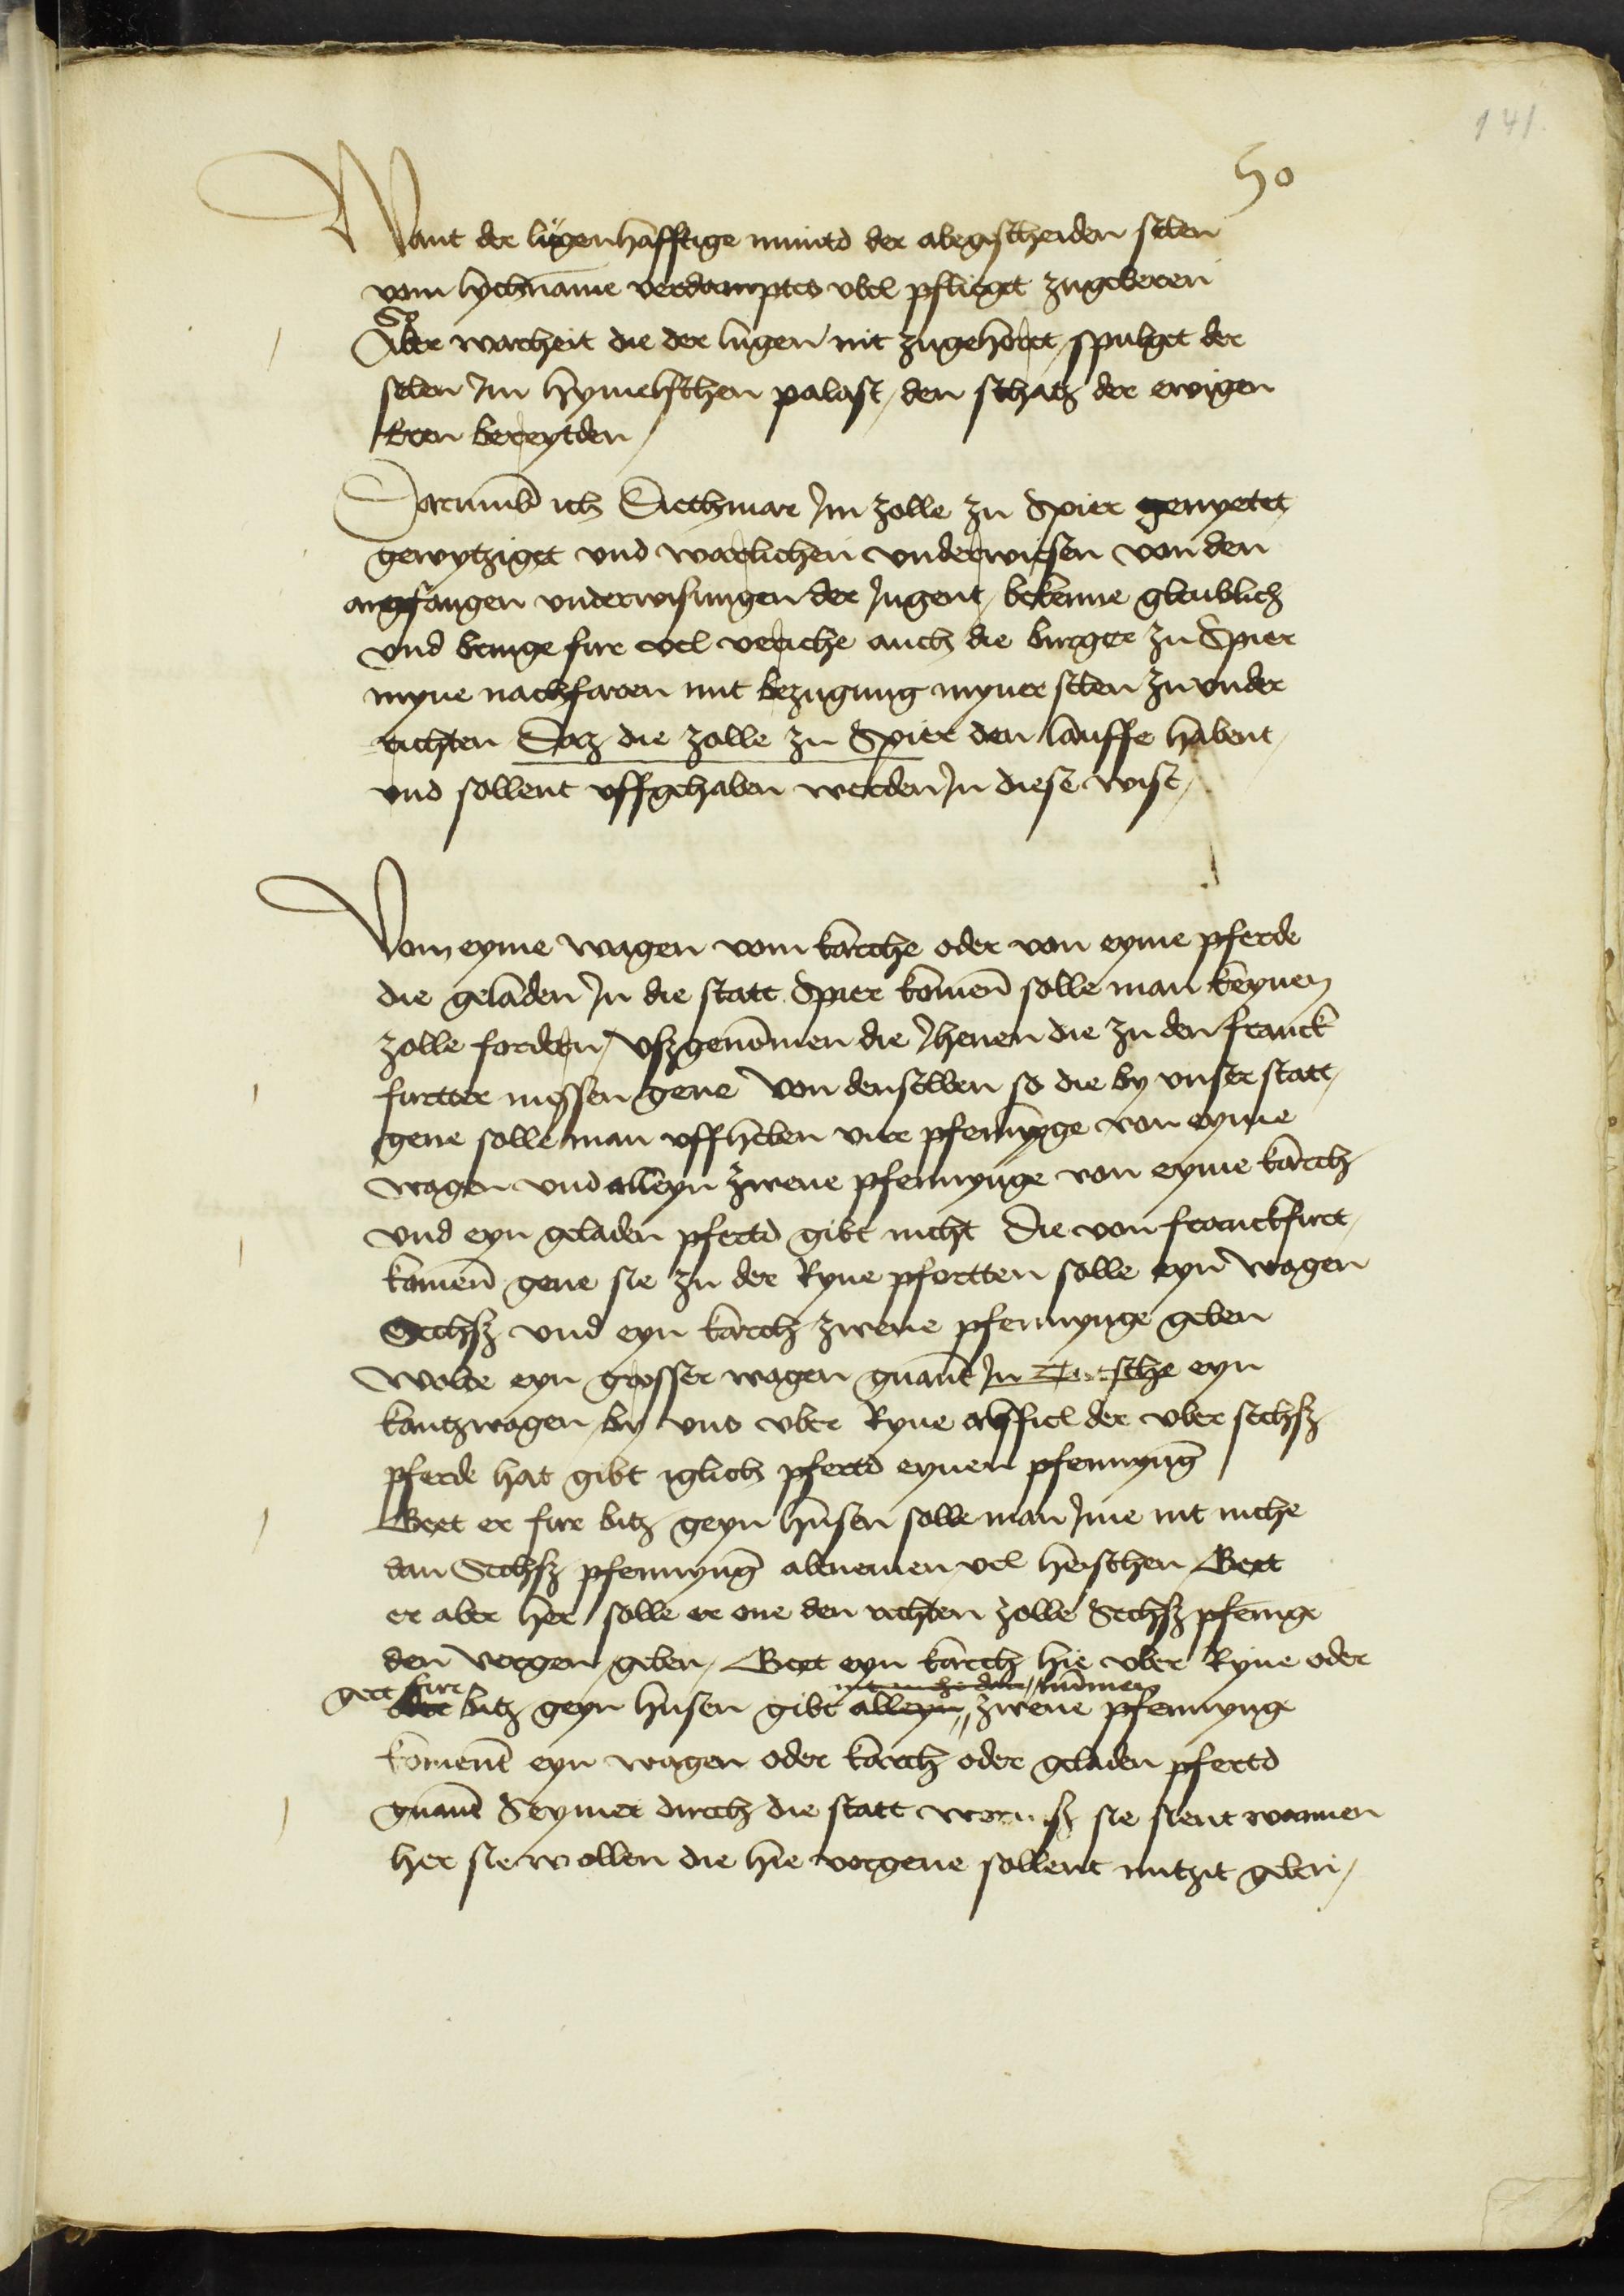 141.
50
Want der lugenhafftige muntd der abegescheiden selen
vom lychnamē verdamptes vbel pflieget zugeberen
So
Aber warheit die der lugen nit zugehoret, spulget der
selen Jm hymelschen palast, den schatz der ewigen
eren bereytden,
Darumb ich Diethmar Jm zolle zu Spier genyetet
gewytziget vnd warlichen vnderwisen von den
angefangen vnderwisungen der Jugent, bekenne gleublich
vnd bringe fure vel veriche auch die burger zu Spier
myne nachfaren mit bezugung myner selen zu vnder
richten Daz die zolle zu Spier den lauffe habent,
vnd sollent vffgehaben werden Jn diese wise,
Vom eyme wagen vom karche oder von eyme pferde
die geladen Jn die statt Spier komen solle man keynen
zolle fordern, vßgenomen die Jhenen die zu den franck
furtter messen gene Von denselben so die by vnser statt,
gene solle man vffheben vire pfennyge von eyme
wagen vnd alleyn zwene pfennynge von eyme karch
vnd eyn geladen pfertd gibt nicht Die von franckfurt,
komen gene sie zu der Ryne pfortten solle eyn wagen
Sechß vnd eyn karch zwene pfennynge geben
Wolde eyn grosser wagen gnant Jn sche eyn
kantzwagen by vns vber Ryne als fiel der vber sechß
pferde hat gibt iglich pfertd eynen pfennyng
Gert er fure bitz geyn husen solle man Jme nit miche
dan Sechß pfennyng abnemen vel heischen Gert
er aber her solle er one den rechten zolle Sechß pfenige
den vergen geben, Gert eyn karch hie vber Ryne oder
gert fure nit miche dan, nummen
bitz geyn husen gibt alleyn, zwene pfennynge
koment eyn wagen oder karch oder geladen pfertd
gnant Seymer durch die statt sie sient wannen
her sie wollen die hie vorgene sollent nutzit geben,